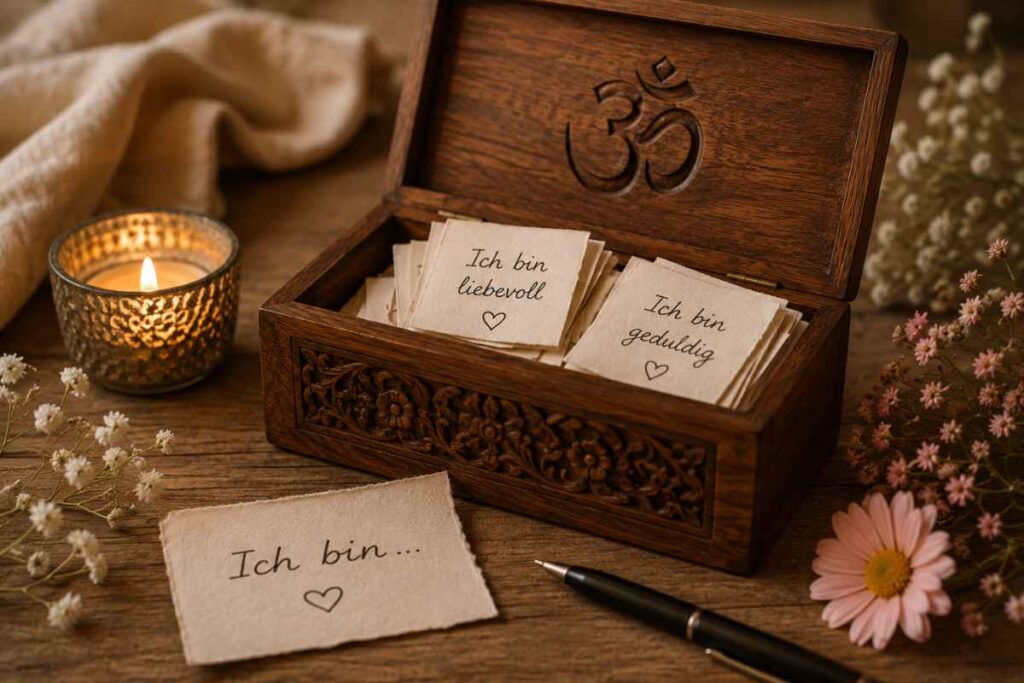 ॐ
Ich bin
liebevoll
♡
Ich bin
geduldig
♡
Ich bin...
♡